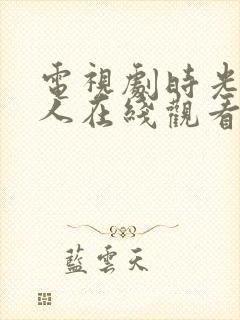 電視劇時光
人在綫觀看
藍雲天